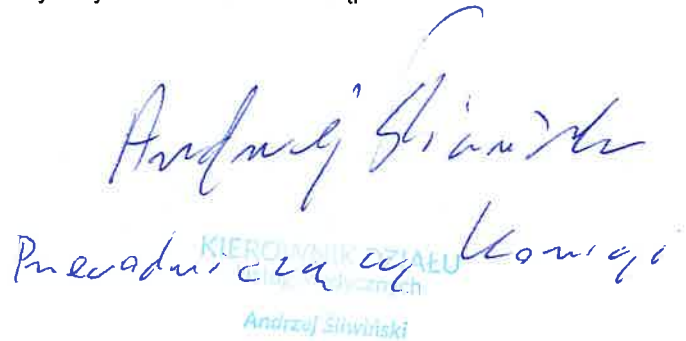 Andrzej Śliwiński
Przewodniczący Komisji
KIEROWNIK DZIAŁU
Andrzej Śliwiński